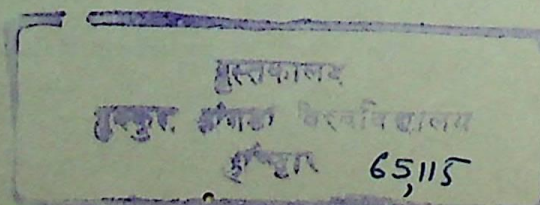 पुस्तकालय
गुरुकुल कांगडी विश्वविद्यालय
हरिद्वार 65,115